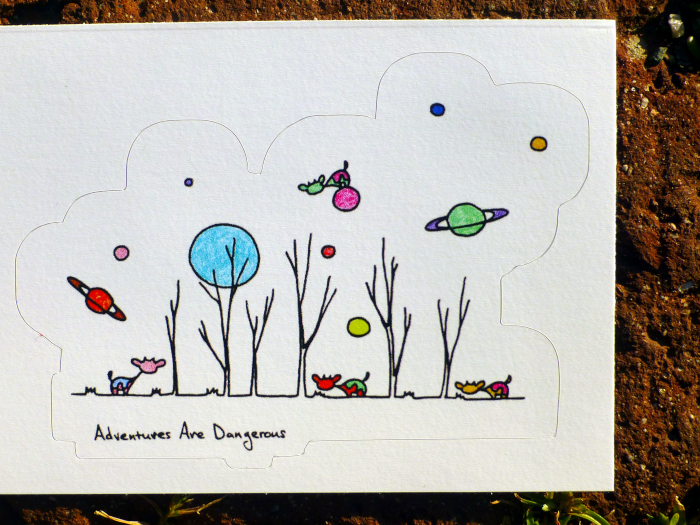 Adventures Are Dangerous